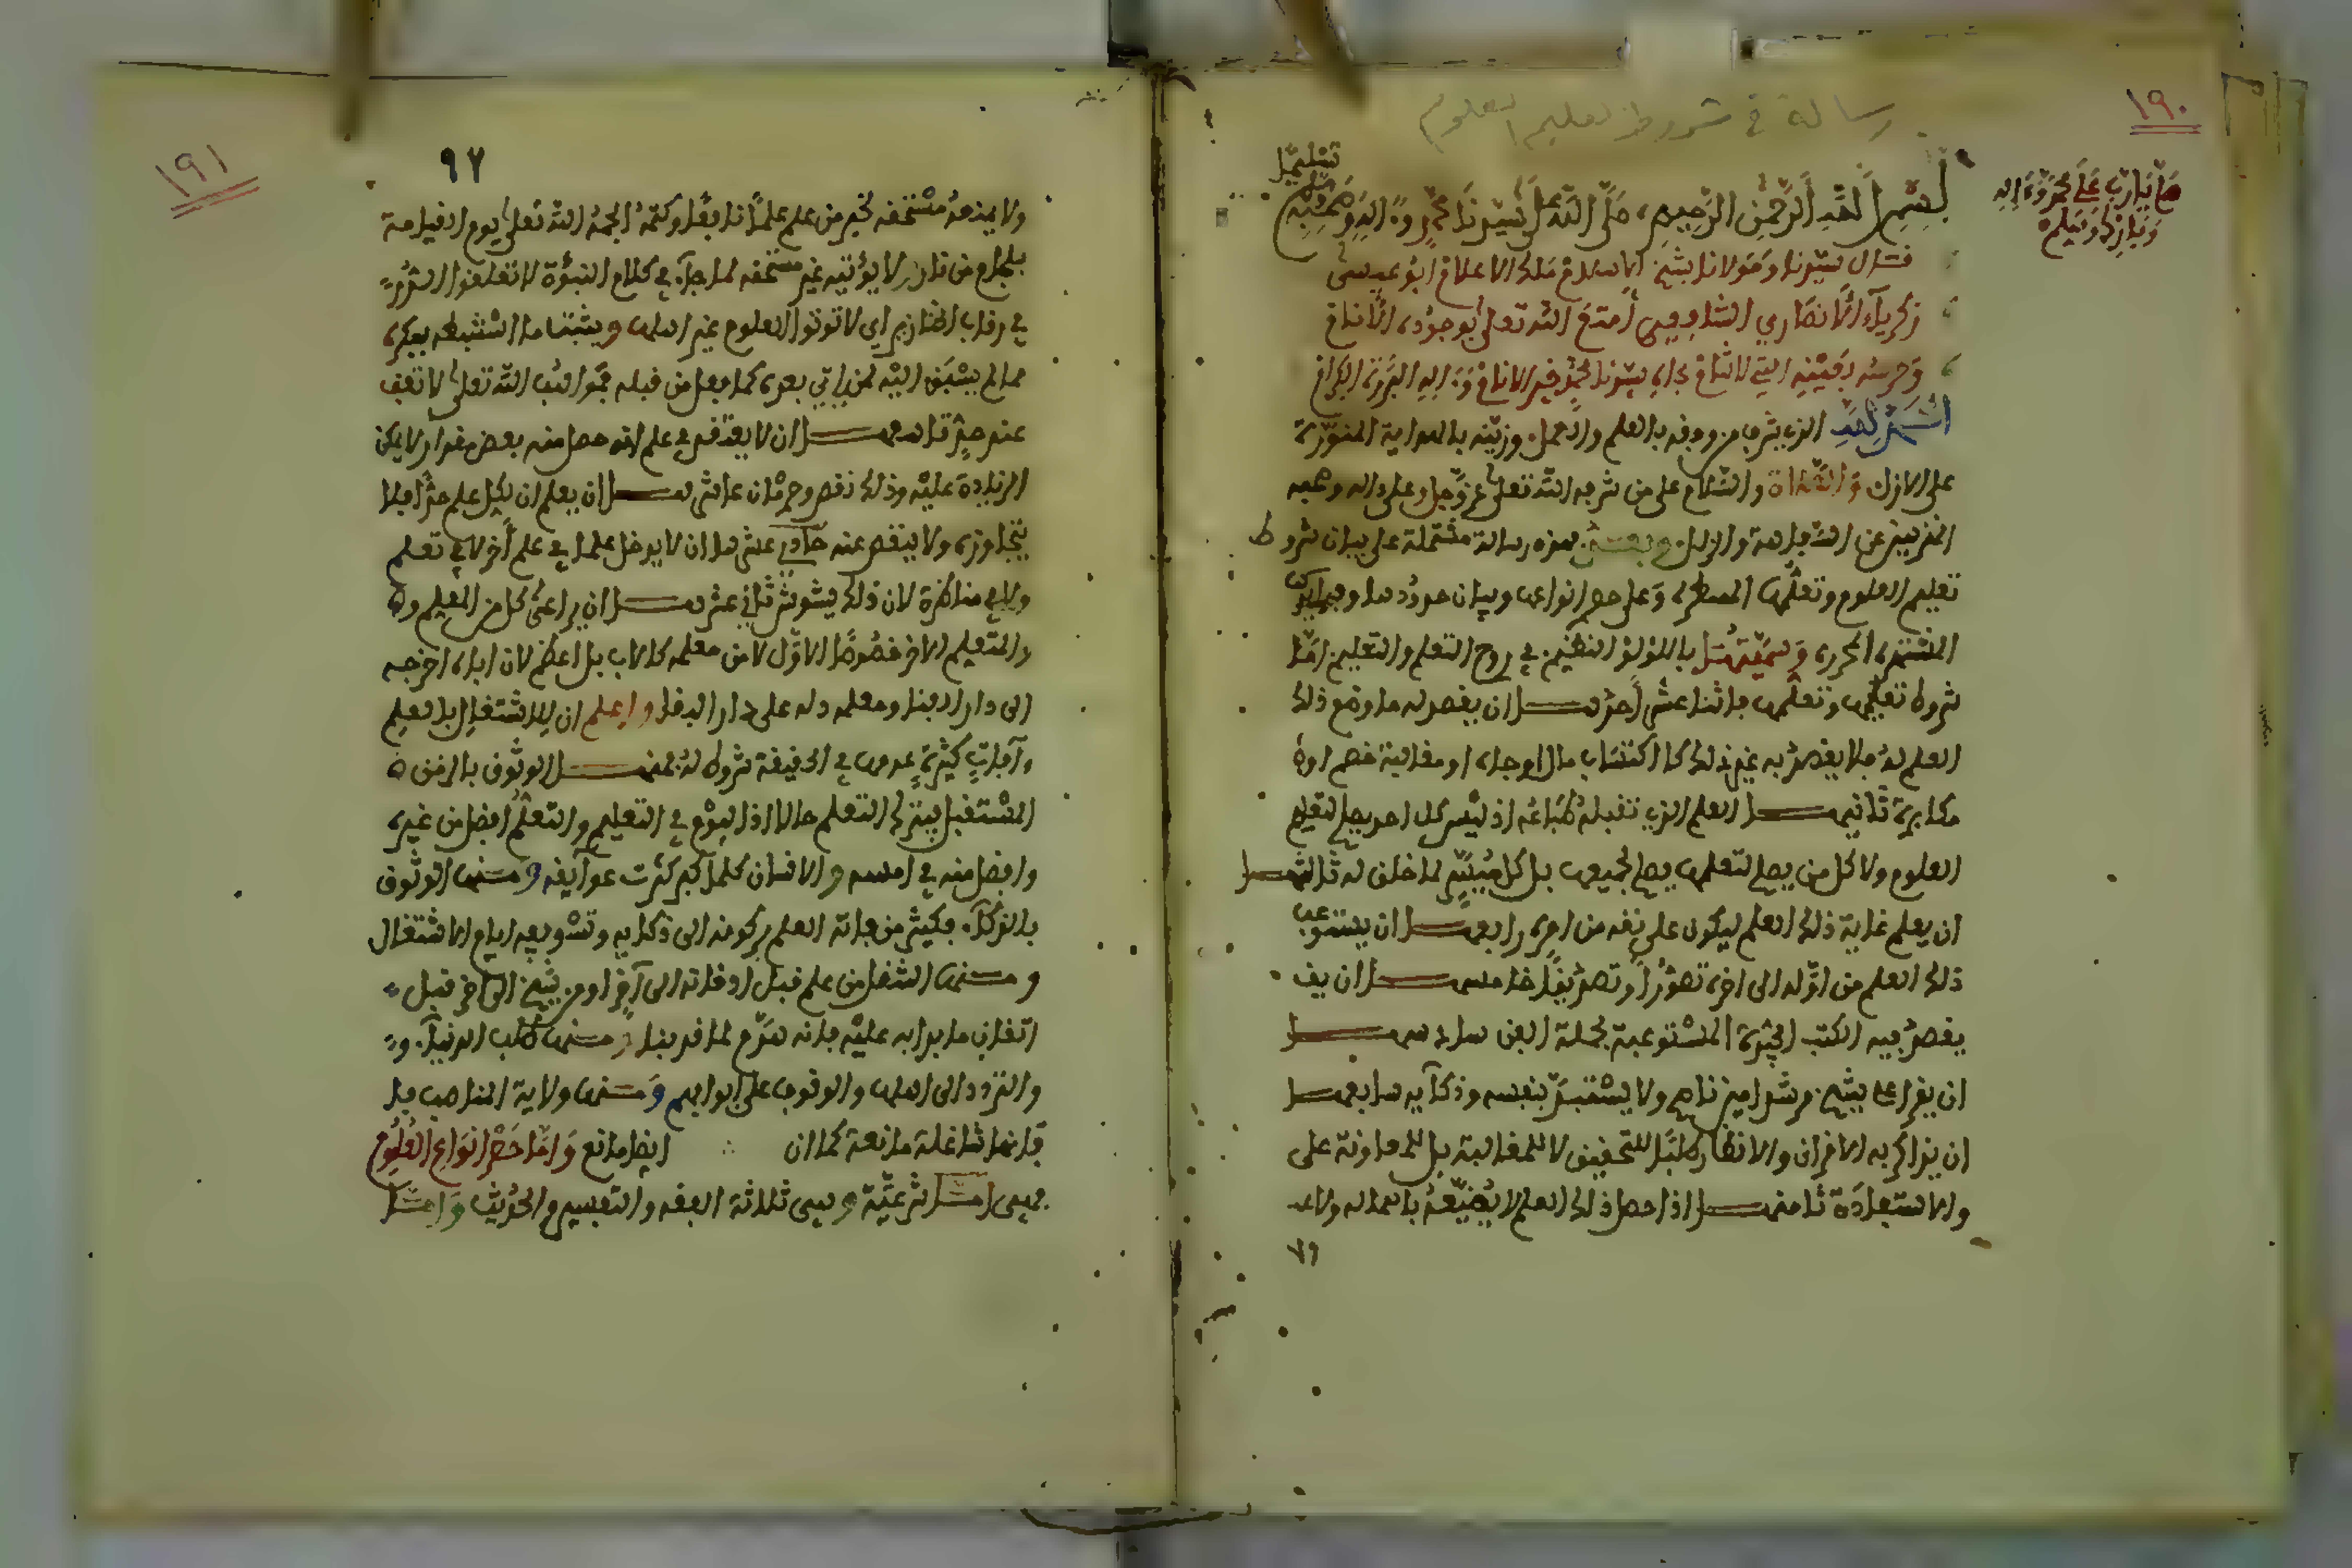 رسالة في شروط تعليم العلوم
١٩٠
صل يا رب على محمد وءاله
وبارك وسلم
بسم الله الرحمن الرحيم، صلى الله على سيدنا محمد وءاله وصحبه
تسليما
قال سيدنا ومولانا شيخ الاسلام ملك الاعلام ابو عيسى
زكرياء الانصاري الشافعي أمتع الله تعلى بوجوده الأنام
وحرسه بعينه التي لا تنام بجاه سيدنا محمد خير الانام وءاله البررة الكرام
الحمد لله الذي شرف من وفقه بالعلم والعمل وزينه بالهداية المنورة
على الازل والصلاة والسلام على من شرفه الله تعلى عز وجل وعلى ءاله وصحبه
المنزهين عن السفاهة والزلل وبعد فهذه رسالة مشتملة على بيان شروط
تعليم العلوم وتعلمها المسطرة وعلى حصر انواعها وبيان حدودها وفوايدها
المشتهرة المحررة وسميتها باللؤلؤ النظيم في روم التعلم والتعليم اما
شروط تعليمها وتعلمها فاثنا عشر أحدها ان يقصد به ما وضع ذلك
العلم له فلا يقصد به غير ذلك كاكتساب مال او جاه او مغالبة خصم او
مكابرة ثانيها العلم الذي تقبله طباعه اذ ليس كل احد يصلح لتعلم
العلوم ولا كل من يصلح لتعلمها يصلح لجميعها بل كل ميسر لما خلق له ثالثها
ان يعلم غاية ذلك العلم ليكون على ثقة من امره رابعها ان يستوعب
ذلك العلم من اوله الى اخره تصورا وتصديقا خامسها ان يقـ
يقصد فيه الكتب الجيدة المستوعبة لجملة الفن سادسها
ان يقرا على شيخ مرشد امين ناصح ولا يستبد بنفسه وذكآيه سابعها
ان يذاكر به الاقران والانظار طلبا للتحقيق لا للمغالبة بل للمعاونة على
والاستفادة ثامنها اذا حصل ذلك العلم لا يضيعه باهماله ولا
١٩١
٩٢
ولا يمنعه مستحقه لخبر من علم علما نافعا وكتمه الجمه الله تعلى يوم القيامة
بلجام من نار ولا يؤتيه غير مستحقه لما جآء في كلام النبوة لا تعلقوا الدرر
في رقاب الخنازير اي لا توتوا العلوم غير اهلها ويثبت ما استنبطه بفكره
مما لم يسبق اليه لمن ياتي بعده كما فعل من قبله فمواهب الله تعلى لا تقف
عند حد تاسعها ان لا يعتقد في علم انه حصل منه بعض مقدار لا يمكن
الزيادة عليه وذلك نقص وحرمان عاشرها ان يعلم ان لكل علم حدا فلا
يتجاوزه ولا ينقص عنه حادي عشرها ان لا يدخل علما في علم أخر لا في تعلم
ولا في مناظرة لان ذلك يشوش ثاني عشرها ان يراعي كل من المعلم و
والمتعلم الاخر خصوصا الاول لان معلمه كالاب بل اعظم لان اباه اخرجه
الى دار الفنا ومعلمه دله على دار البقا واعلم ان للاشتغال بالعلم
ءافات كثيرة عدمها في الحقيقة شروط له فمنها الوثوق بالزمن
المستقبل فيترك التعلم حالا اذ اليوم في التعليم والتعلم افضل من غيره
وافضل منه في امسه والانسان كلما كبر كثرت عوآيقه ومنها الوثوق
بالذكآء فكثير من فاته العلم بركونه الى ذكايه وتسويفه ايام الاشتغال
ومنها التنقل من علم قبل اتقانه الى آخر او من شيخ الى اخر قبل
اتقان ما بدا به عليه فانه هدم لما قد بنا ومنها طلب الدنيا و
والتردد الى اهلها والوقوف على ابوابهم ومنها ولاية المناصب فا
فانها شاغلة مانعة كما ان ايضا مانع واما حصر انواع العلوم
فهي اما شرعية وهي ثلاثة الفقه والتفسير والحديث واما